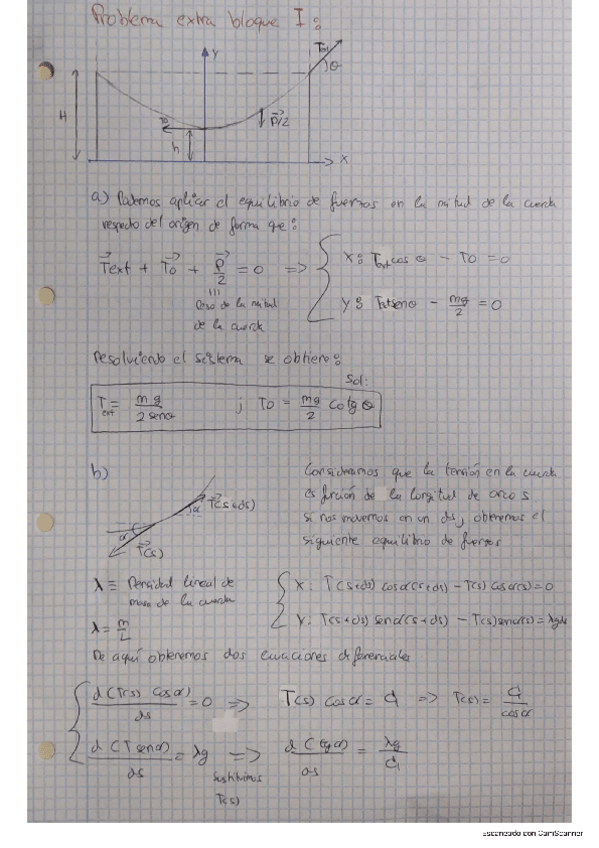 Problema extra bloque I:
y
Text
θ
H
To
P/2
h
x
a) Podemos aplicar el equilibrio de fuerzas en la mitad de la cuerda
respecto del origen de forma que:
Text + To + P/2 = 0 => { x: Text cos θ - To = 0
Peso de la mitad de la cuerda
y: Text senθ - mg/2 = 0
Resolviendo el sistema se obtiene:
Sol:
Text = mg / 2senθ ; To = mg/2 cotg θ
b)
Consideramos que la tensión en la cuerda
es función de la longitud de arco s
si nos movemos en un ds, obtenemos el
siguiente equilibrio de fuerzas
α T(s+ds)
α T(s)
λ ≡ Densidad lineal de
masa de la cuerda
λ = m/L
{ X: T(s+ds) cosα(s+ds) - T(s) cosα(s) = 0
Y: T(s+ds) senα(s+ds) - T(s) senα(s) = λgds
De aquí obtenemos dos ecuaciones diferenciales
{ d(T(s) cosα)/ds = 0 => T(s) cosα = C1 => T(s) = C1/cosα
d(T senα)/ds = λg => d(tgα)/ds = λg/C1
Sustituimos
T(s)
Escaneado con CamScanner